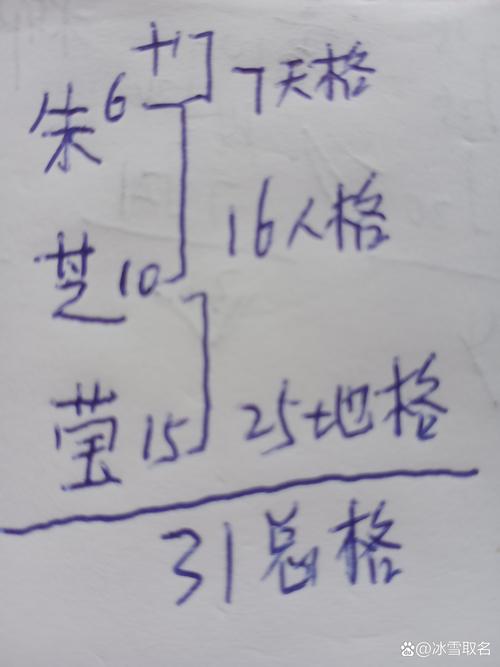 +1
朱6 7天格
16人格
芝10
莹15 25地格
31总格
@冰雪取名